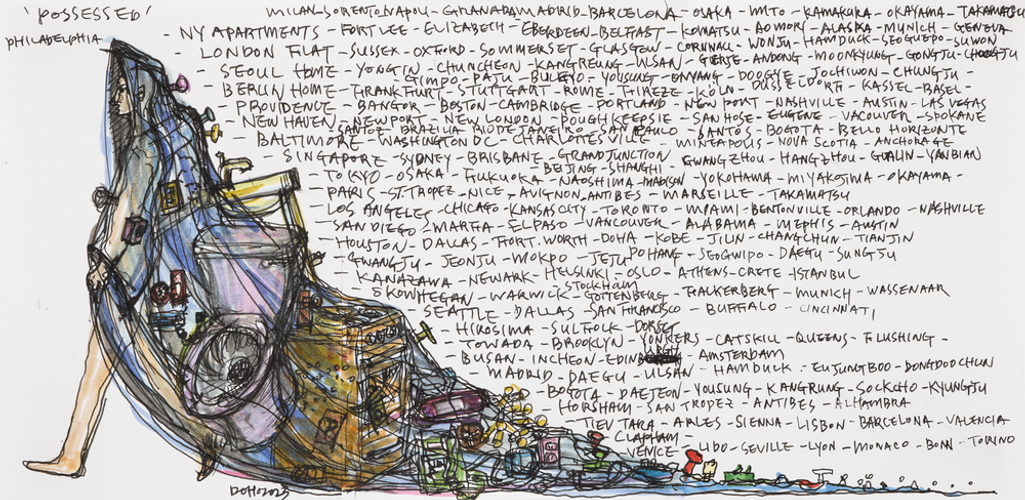 'POSSESSED'
MILAN-SORENTO-NAPOLI-GRANADA-MADRID-BARCELONA-OSAKA-MITO-KAMAKURA-OKAYAMA-TAKAMATSU
PHILADELPHIA
- NY APARTMENTS - FORT LEE - ELIZABETH - EBERDEEN-BELFAST - KOMATSU - AOMORI - ALASKA - MUNICH - GENEVA
- LONDON FLAT - SUSSEX - OXFORD - SOMMERSET - GLASGOW - CORNWALL - WONJU - HAMDUCK - SEOGUEPO - SUWON
- SEOUL HOME - YONGIN - CHUNCHEON - KANGREUNG - ULSAN - GURYE-ANDONG - MOONKYUNG - GONGJU -
GIMPO - PAJU - YOUSUNG - ONYANG - DOOGYE - JOCHIWON - CHUNGJU -
- BERLIN HOME - FRANKFURT - STUTTGART - ROME - FIREZE - KÖLN - DUSSELDORF - KASSEL - BASEL -
- PROVIDENCE - BANGOR - BOSTON - CAMBRIDGE - PORTLAND - NEW PORT - NASHVILLE - AUSTIN - LAS VEGAS
- NEW HAVEN - NEWPORT - NEW LONDON - POUGHKEEPSIE - SAN HOSE - EUGENE - VACOUVER - SPOKANE
SANTOZ - BRAZILIA - RIO DE JANEIRO - SAN PAULO - SANTOS - BOGOTA - BELLO HORIZONTE
- BALTIMORE - WASHINGTON DC - CHARLOTTESVILLE - MINEAPOLIS - NOVA SCOTIA - ANCHORAGE
- SINGAPORE - SYDNEY - BRISBANE - GRAND JUNCTION - GWANGZHOU - HANGZHOU - GUALIN - YANBIAN
BEIJING - SHANGHI -
- TOKYO - OSAKA - FUKUOKA - NAOSHIMA - MADISON - YOKOHAMA - MIYAKOJIMA - OKAYAMA -
- PARIS - ST.TROPEZ - NICE - AVIGNON - ANTIBES - MARSEILLE - TAKAMATSU
- LOS ANGELES - CHICAGO - KANSAS CITY - TORONTO - MIAMI - BENTONVILLE - ORLANDO - NASHVILLE
- SAN DIEGO - MARFA - EL PASO - VANCOUVER - ALABAMA - MEPHIS - AUSTIN
- HOUSTON - DALLAS - FORT.WORTH - DOHA - KOBE - JILIN - CHANGCHUN - TIANJIN
- GWANGJU - JEONJU - MOKPO - JEJU - POHANG - SEOGWIPO - DAEGU - SUNGJU
- KANAZAWA - NEWARK - HELSINKI - OSLO - ATHENS - CRETE - ISTANBUL
STOCKHOLM
- SKOWHEGAN - WARWICK - GOTTENBERG - FALKERBERG - MUNICH - WASSENAAR
SEATTLE - DALLAS - SAN FRANCISCO - BUFFALO - CINCINNATI
- HIROSIMA - SULFOLK - DORSET
- TOWADA - BROOKLYN - YONKERS - CATSKILL - QUEENS - FLUSHING -
- BUSAN - INCHEON - EDINBURGH - AMSTERDAM
- MADRID - DAEGU - ULSAN - HAMDUCK - EUJUNGBOO - DONGDOOCHUN
BOGOTA - DAEJEON - YOUSUNG - KANGRUNG - SOCKCHO - KYUNGJU
- HORSHAM - SAN TROPEZ - ANTIBES - ALHAMBRA
- ARLES - SIENNA - LISBON - BARCELONA - VALENCIA
CLAPHAM
VENICE - LIDO - SEVILLE - LYON - MONACO - BONN - TORINO
DOHO 2023